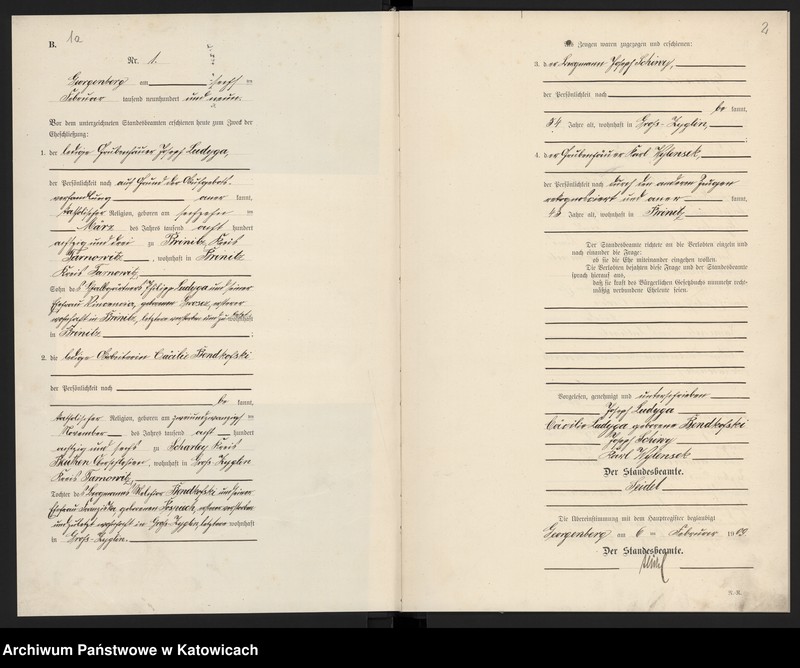 B. 1a
Nr. 1.
Georgenberg am sechs ten
Februar tausend neunhundert und neun.
Vor dem unterzeichneten Standesbeamten erschienen heute zum Zweck der
Eheschließung:
1. der ledige Grubenhäuer Joseph Ludyga,
der Persönlichkeit nach auf Grund der Aufgebots-
verhandlung aner kannt,
katholischer Religion, geboren am sechzehn ten
März des Jahres tausend acht hundert
achtzig und drei zu Brinitz, Kreis
Tarnowitz, wohnhaft in Brinitz
Kreis Tarnowitz
Sohn des Philipp Ludyga und seiner
Ehefrau geborenen
wohnhaft in Brinitz, letztere verstorben und zuletzt wohnhaft
in Brinitz ;
2. die ledige Arbeiterin Cäcilie Bendkofski
der Persönlichkeit nach
be kannt,
katholischer Religion, geboren am zweiundzwanzigs ten
November des Jahres tausend acht hundert
achtzig und sechs zu Scharley Kreis
Beuthen Oberschlesien, wohnhaft in Groß-Zyglin
Kreis Tarnowitz,
Tochter des Bergmannes Bendkofski und seiner
Ehefrau Franziska geborenen ersterer verstorben
und zuletzt wohnhaft in Groß-Zyglin, letztere wohnhaft
in Groß-Zyglin.
2
Als Zeugen waren zugezogen und erschienen:
3. der Bergmann Joseph
der Persönlichkeit nach
be kannt,
34 Jahre alt, wohnhaft in Groß-Zyglin, ;
4. der Grubenhäuer Karl
der Persönlichkeit nach durch den anderen Zeugen
rekognosziert und aner kannt,
Jahre alt, wohnhaft in Brinitz
Der Standesbeamte richtete an die Verlobten einzeln und
nach einander die Frage:
ob sie die Ehe miteinander eingehen wollen.
Die Verlobten bejahten diese Frage und der Standesbeamte
sprach hierauf aus,
daß sie kraft des Bürgerlichen Gesetzbuchs nunmehr recht-
mäßig verbundene Eheleute seien.
Vorgelesen, genehmigt und unterschrieben
Joseph Ludyga
Cäcilie Ludyga geborene Bendkofski
Joseph
Karl
Der Standesbeamte.
Seidel
Die Übereinstimmung mit dem Hauptregister beglaubigt
Georgenberg am 6 ten Februar 1909.
Der Standesbeamte.
Seidel
Archiwum Państwowe w Katowicach